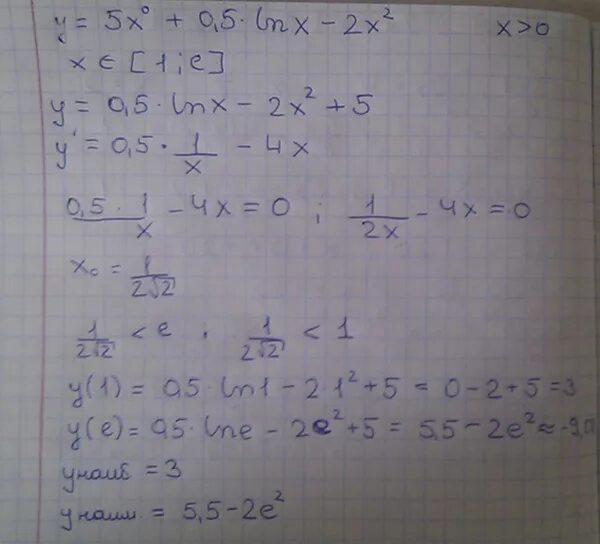 y = 5x⁰ + 0,5 · lnx − 2x² x>0
x ∈ [1; e]
y = 0,5 · lnx − 2x² + 5
y' = 0,5 · 1/x − 4x
0,5 · 1/x − 4x = 0 ; 1/2x − 4x = 0
x₀ = 1/2√2
1/2√2 < e , 1/2√2 < 1
y(1) = 0,5 · ln1 − 2·1² + 5 = 0 − 2 + 5 = 3
y(e) = 0,5 · lne − 2e² + 5 = 5,5 − 2e² ≈ −9,
yнаиб = 3
yнаим = 5,5 − 2e²